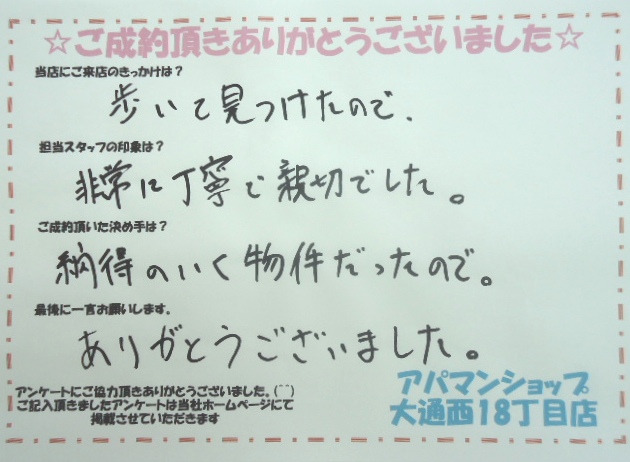 ☆ご成約頂きありがとうございました☆
当店にご来店のきっかけは?
歩いて見つけたので、
担当スタッフの印象は?
非常に丁寧で親切でした。
ご成約頂いた決め手は?
納得のいく物件だったので。
最後に一言お願いします。
ありがとうございました。
アンケートにご協力頂きありがとうございました。(^^)
ご記入頂きましたアンケートは当社ホームページにて
掲載させていただきます
アパマンショップ
大通西18丁目店